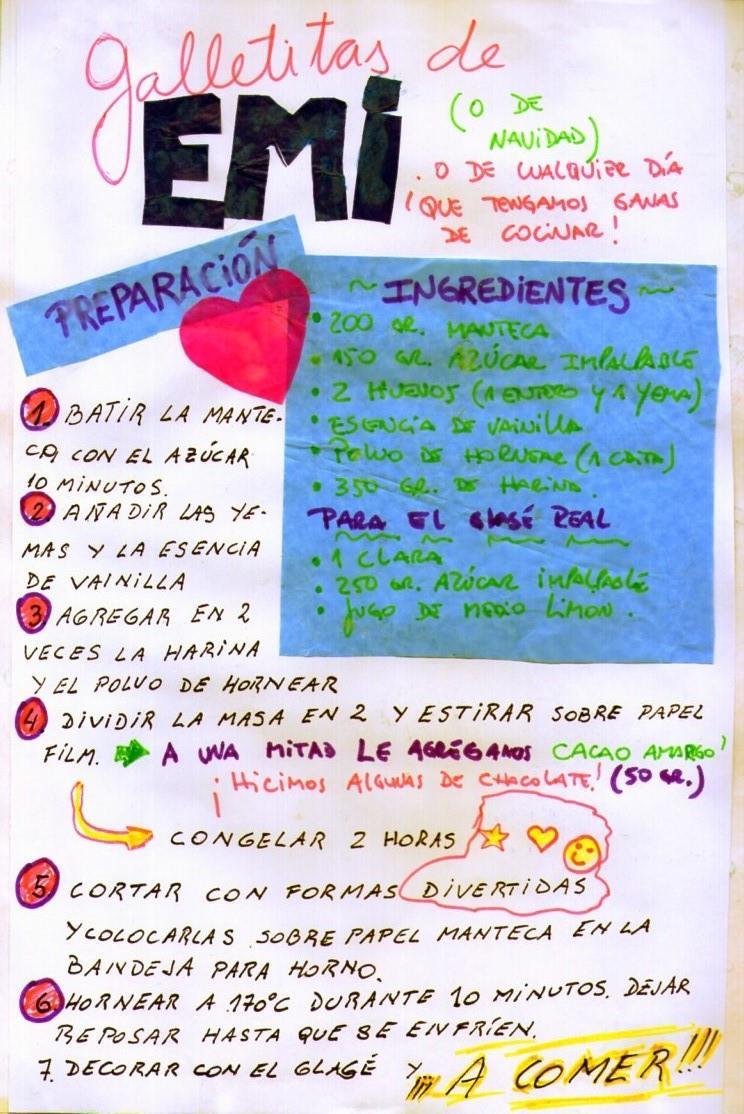 galletitas de
EMI
(O DE
NAVIDAD)
. O DE CUALQUIER DÍA
¡QUE TENGAMOS GANAS
DE COCINAR!
PREPARACIÓN
~ INGREDIENTES ~
• 200 GR. MANTECA
• 150 GR. AZÚCAR IMPALPABLE
• 2 HUEVOS (1 ENTERO Y 1 YEMA)
• ESENCIA DE VAINILLA
• POLVO DE HORNEAR (1 CDITA)
• 350 GR. DE HARINA.
PARA EL GLASÉ REAL
• 1 CLARA
• 250 GR. AZÚCAR IMPALPABLE
• JUGO DE MEDIO LIMON.
1. BATIR LA MANTE-
CA CON EL AZÚCAR
10 MINUTOS.
2. AÑADIR LAS YE-
MAS Y LA ESENCIA
DE VAINILLA
3. AGREGAR EN 2
VECES LA HARINA
Y EL POLVO DE HORNEAR
4. DIVIDIR LA MASA EN 2 Y ESTIRAR SOBRE PAPEL
FILM. A UNA MITAD LE AGRÉGAMOS CACAO AMARGO!
¡HICIMOS ALGUNAS DE CHACOLATE! (50 GR.)
CONGELAR 2 HORAS
5 CORTAR CON FORMAS DIVERTIDAS
Y COLOCARLAS SOBRE PAPEL MANTECA EN LA
BANDEJA PARA HORNO.
6. HORNEAR A 170°C DURANTE 10 MINUTOS. DEJAR
REPOSAR HASTA QUE SE ENFRÍEN.
7. DECORAR CON EL GLAGÉ Y... ¡¡¡A COMER!!!